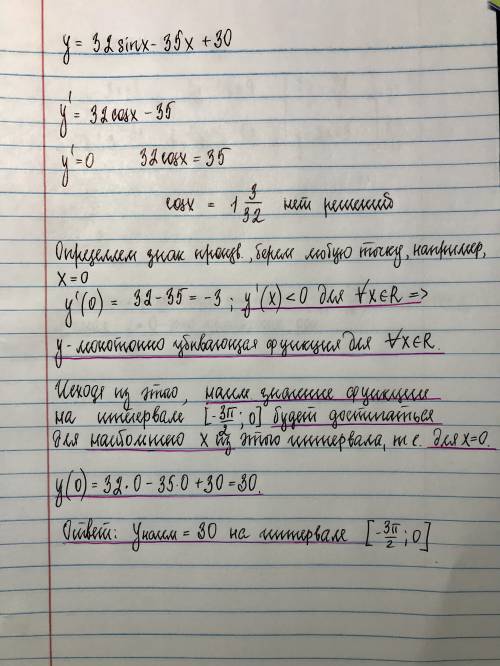 y = 32 sinx - 35x + 30
y' = 32cosx - 35
y' = 0 32cosx = 35
cosx = 1 3/32 нет решений
Определяем знак произв., берем любую точку, например,
x = 0
y'(0) = 32 - 35 = -3 ; y'(x) < 0 для ∀x∈R =>
y - монотонно убывающая функция для ∀x∈R.
Исходя из этого, наим значение функции
на интервале [-3π/2 ; 0] будет достигаться
для наибольшего x из этого интервала, т.е. для x=0.
y(0) = 32·0 - 35·0 + 30 = 30.
Ответ: yнаим = 30 на интервале [-3π/2 ; 0]